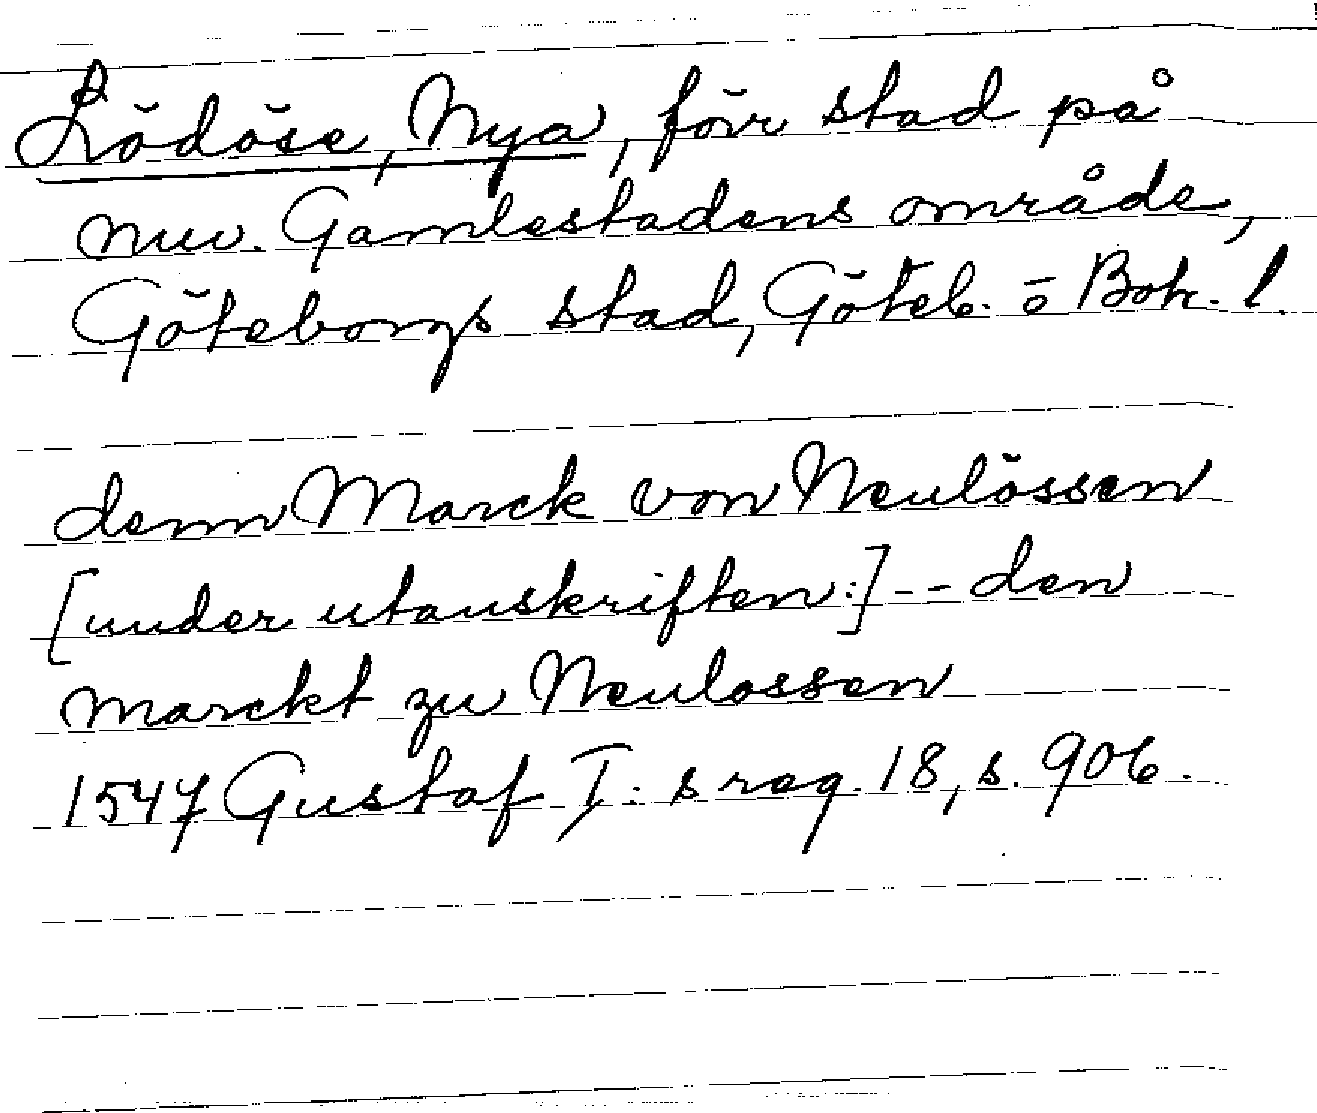 Lödöse, Nya, förr stad på
nuv. Gamlestadens område,
Göteborgs stad, Göteb. o Boh. l.
denn Marck von Neulössen
[under utanskriften:] -- den
marckt zu Neulossen
1547 Gustaf I:s reg. 18, s. 906.